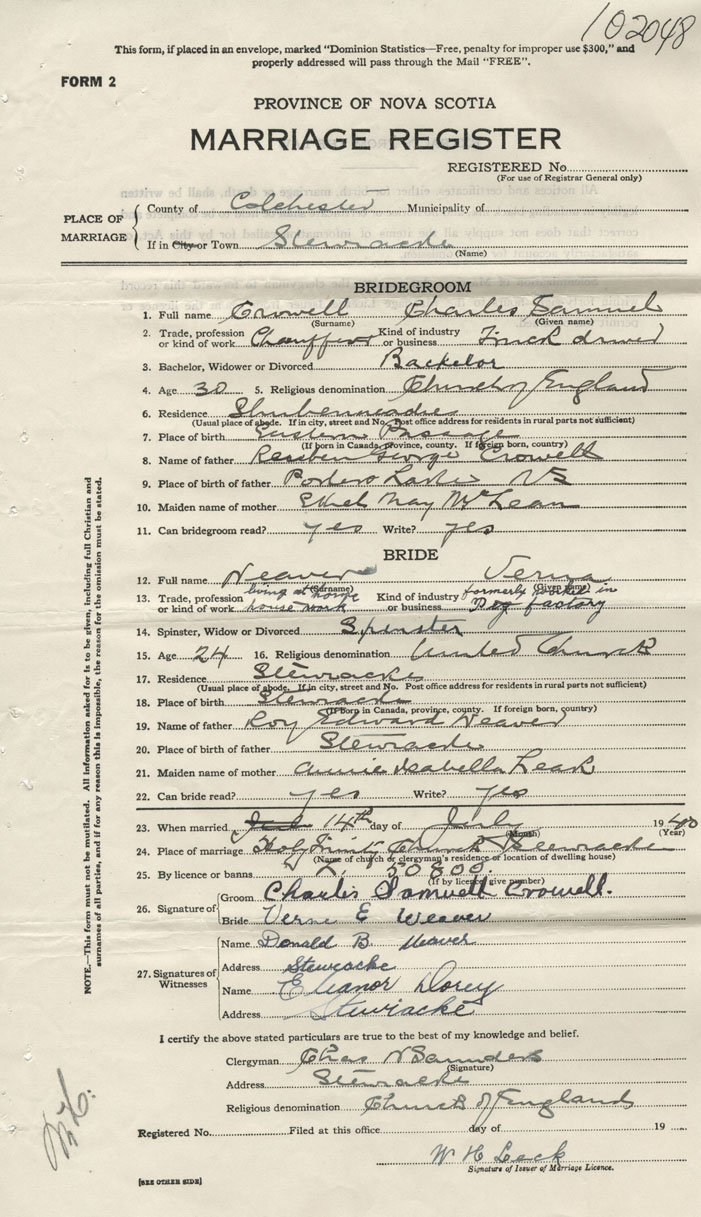 102048
This form, if placed in an envelope, marked "Dominion Statistics—Free, penalty for improper use $300," and
properly addressed will pass through the Mail "FREE".
FORM 2
PROVINCE OF NOVA SCOTIA
MARRIAGE REGISTER
REGISTERED No.
(For use of Registrar General only)
PLACE OF MARRIAGE
County of Colchester Municipality of
If in City or Town Stewiacke
(Name)
BRIDEGROOM
1. Full name Crowell Charles Samuel
(Surname) (Given name)
2. Trade, profession or kind of work Chauffeur Kind of industry or business Truck driver
3. Bachelor, Widower or Divorced Bachelor
4. Age 30 5. Religious denomination Church of England
6. Residence Shubenacadie
(Usual place of abode. If in city, street and No. Post office address for residents in rural parts not sufficient)
7. Place of birth Eastern Passage
(If born in Canada, province, county. If foreign born, country)
8. Name of father Reuben George Crowell
9. Place of birth of father NS
10. Maiden name of mother Ethel May McLean
11. Can bridegroom read? yes Write? yes
BRIDE
12. Full name Weaver Verna
(Surname) (Given name)
13. Trade, profession or kind of work living at home house work Kind of industry or business formerly worked in factory
14. Spinster, Widow or Divorced Spinster
15. Age 24 16. Religious denomination United Church
17. Residence Stewiacke
(Usual place of abode. If in city, street and No. Post office address for residents in rural parts not sufficient)
18. Place of birth Stewiacke
(If born in Canada, province, county. If foreign born, country)
19. Name of father Roy Edward Weaver
20. Place of birth of father Stewiacke
21. Maiden name of mother Annie Isabella Leak
22. Can bride read? yes Write? yes
23. When married 14th day of July 1940
(Month) (Year)
24. Place of marriage Holy Trinity Church Stewiacke
(Name of church or clergyman's residence or location of dwelling house)
25. By licence or banns L. 50800.
(If by licence give number)
26. Signature of
Groom Charles Samuell Crowell.
Bride Verna E Weaver
27. Signatures of Witnesses
Name Donald B. Weaver
Address Stewiacke
Name Eleanor Dorey
Address Stewiacke
I certify the above stated particulars are true to the best of my knowledge and belief.
Clergyman Chas N Saunders
(Signature)
Address Stewiacke
Religious denomination Church of England
Registered No. Filed at this office day of 19
W H Leck
Signature of Issuer of Marriage Licence.
[SEE OTHER SIDE]
NOTE.—This form must not be mutilated. All information asked for is to be given, including full Christian and
surnames of all parties, and if for any reason this is impossible, the reason for the omission must be stated.